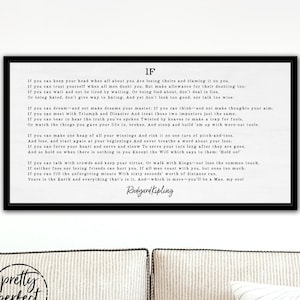 IF
If you can keep your head when all about you Are losing theirs and blaming it on you,
If you can trust yourself when all men doubt you, But make allowance for their doubting too:
If you can wait and not be tired by waiting, Or being lied about, don't deal in lies,
Or being hated, don't give way to hating, And yet don't look too good, nor talk too wise:
If you can dream—and not make dreams your master; If you can think—and not make thoughts your aim,
If you can meet with Triumph and Disaster And treat those two impostors just the same,
If you can bear to hear the truth you've spoken Twisted by knaves to make a trap for fools,
Or watch the things you gave your life to, broken, And stoop and build 'em up with worn-out tools.
If you can make one heap of all your winnings And risk it on one turn of pitch-and-toss,
And lose, and start again at your beginnings And never breathe a word about your loss:
If you can force your heart and nerve and sinew To serve your turn long after they are gone,
And so hold on when there is nothing in you Except the Will which says to them: 'Hold on!'
If you can talk with crowds and keep your virtue, Or walk with Kings—nor lose the common touch,
If neither foes nor loving friends can hurt you, If all men count with you, but none too much:
If you can fill the unforgiving minute With sixty seconds' worth of distance run,
Yours is the Earth and everything that's in it, And—which is more—you'll be a Man, my son!
Rudyard Kipling
pretty
perfect